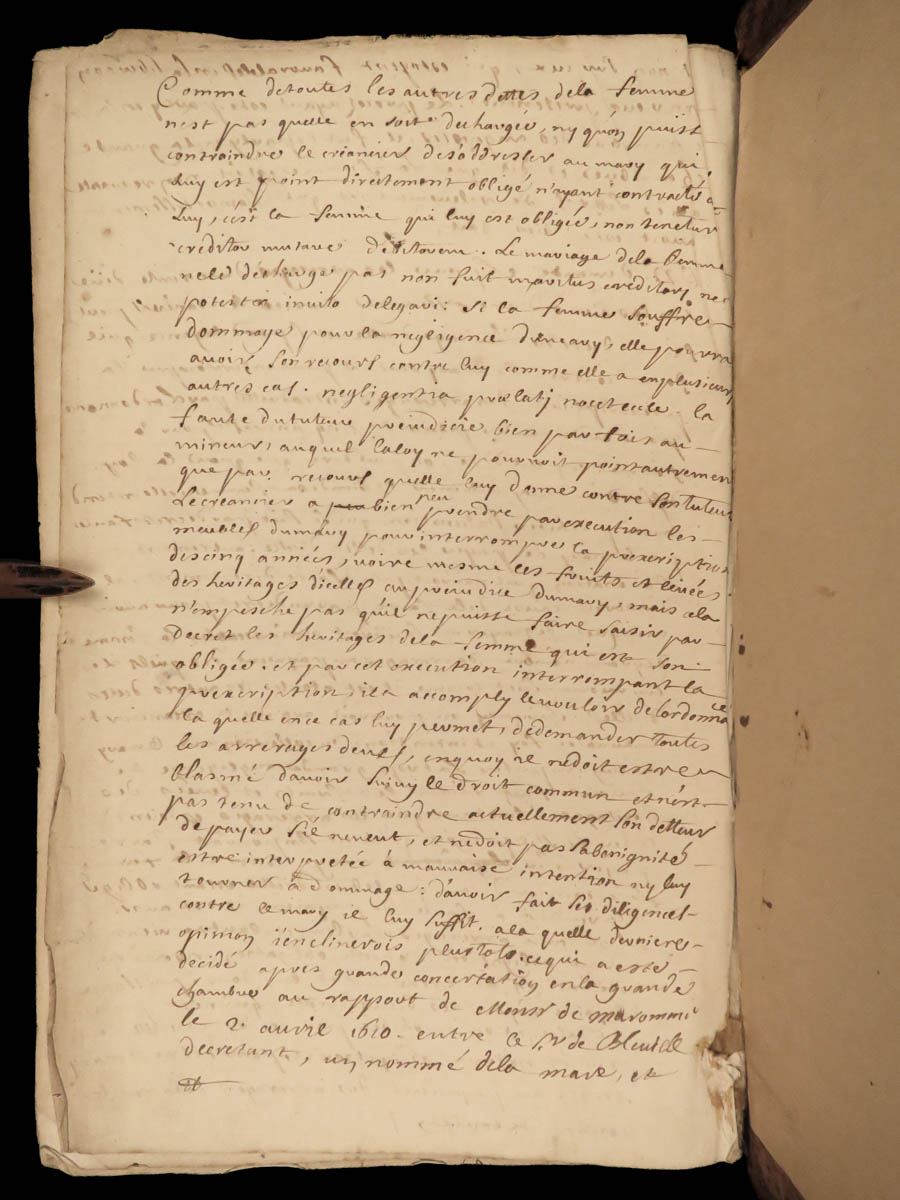 Comme detoutes les autres dettes dela femme
nest pas quelle en soit deschargée, ny quon puist
contraindre le créancier desaddresser au mary qui
Luy est point directement obligé n'ayant contracté a
Luy, c'est la femme qui luy est obligée, non tenetur
creditor mutare debitorem. Le mariage dela femme
nele décharge pas non fuit maritus creditorj nec
potest ei invito delegari: Si la femme souffre
dommage pour la negligence dumary, elle pourra
avoir son recours contre luy comme elle a enplusieurs
autres cas. negligentia prælatj nocet eccle. la
faute dututeur preiudicie bien par fois au
mineur, auquel laloy ne pourvoit point autrement
que par recours quelle luy donne contre sontuteur
Le creancier a bien peu prendre par execution les
meubles dumary pour interrompre la prexcription
descinq années, voire mesme les fruits et levées
des heritages d'icelle au preiudice dumary, mais cela
n'empesche pas qu'il nepuisse faire saisir par
decret les heritages dela femme qui est son
obligée. et par cet execution interrompant la
prexcription, il a accomply levouloir de lordonnãce
la quelle ence cas luy permet, dedemander toutes
les arrerages deues, enquoy il nedoit estre
blasmé davoir suivy le droit commun et n'est
pas tenu de contraindre actuellement son detteur
de payer sil neveut, et nedoit pas sabenignité
estre interpretée à mauvaise intention ny luy
tourner à dommage: d'avoir fait ses diligences
contre le mary il luy suffit. ala quelle derniere
opinion j'enclinerois plustots. cequi a esté
decidé apres grande concertation enla grande
chambre au rapport de Monsr de maromme
le 2. avril 1610. entre le Sr de Bleville
decretant, un nommé dela mare, et